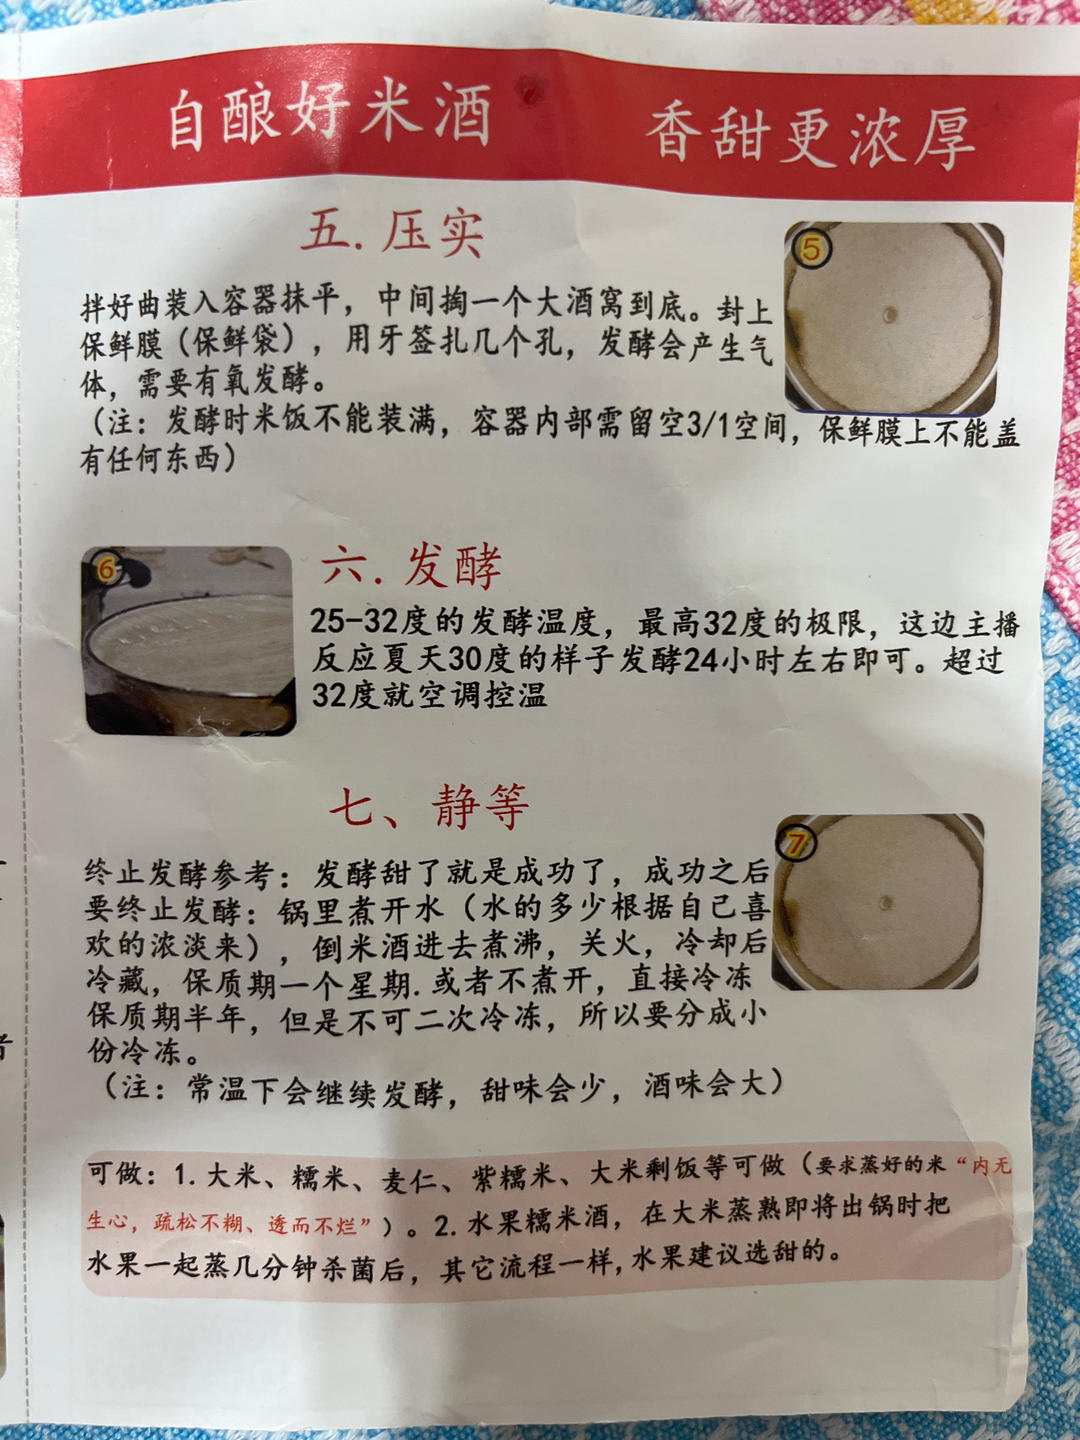 自酿好米酒 香甜更浓厚
五.压实
5
拌好曲装入容器抹平，中间掏一个大酒窝到底。封上
保鲜膜（保鲜袋），用牙签扎几个孔，发酵会产生气
体，需要有氧发酵。
（注：发酵时米饭不能装满，容器内部需留空3/1空间，保鲜膜上不能盖
有任何东西）
6
六.发酵
25-32度的发酵温度，最高32度的极限，这边主播
反应夏天30度的样子发酵24小时左右即可。超过
32度就空调控温
七、静等
7
终止发酵参考：发酵甜了就是成功了，成功之后
要终止发酵：锅里煮开水（水的多少根据自己喜
欢的浓淡来），倒米酒进去煮沸，关火，冷却后
冷藏，保质期一个星期.或者不煮开，直接冷冻
保质期半年，但是不可二次冷冻，所以要分成小
份冷冻。
（注：常温下会继续发酵，甜味会少，酒味会大）
可做：1.大米、糯米、麦仁、紫糯米、大米剩饭等可做（要求蒸好的米“内无
生心，疏松不糊、透而不烂”）。2.水果糯米酒，在大米蒸熟即将出锅时把
水果一起蒸几分钟杀菌后，其它流程一样,水果建议选甜的。